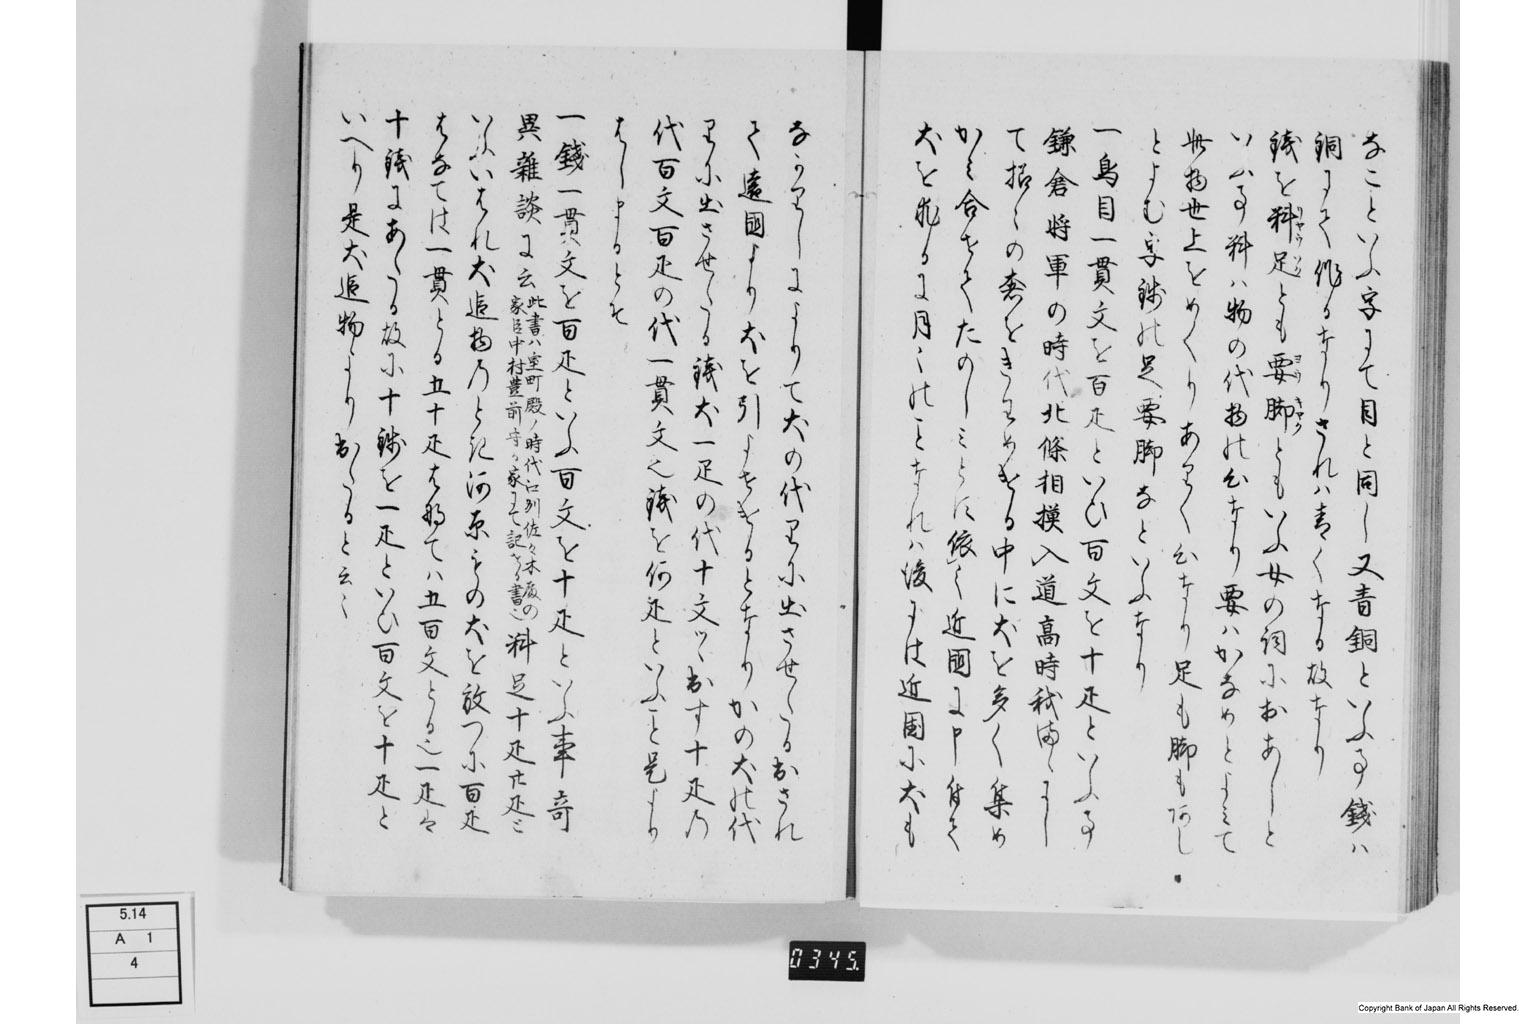 なことゝいふ字にて目と同し又青銅といふ事錢ハ
銅にて作るなりされハ青くなる故なり
錢を料足とも要脚ともいふ女の詞におあしと
いふ事料ハ物の代物の心なり要ハかなめとよみて
此物世上をめくりありく心なり足も脚もあし
とよむ字故に足要脚なといふなり
一鳥目一貫文を百疋といひ百文を十疋といふ事
鎌倉將軍の時代北條相摸入道高時
て招くの をきはめける中に犬を多く集め
かミ合せてたのしミとに依て近國に申付て
犬を る に月 のことなれハ後には近国に犬も
なかりしによりて犬の代りに出させらるおされ
て遠國より犬を引よせけるとなりかの犬の代
りに出させらる錢犬一疋の代十文ツヽ出す十疋の
代百文百疋の代一貫文也錢を何疋といふこと是より
はしまるとそ
一錢一貫文を百疋といふ百文を十疋といふ事奇
異雜談に云此書ハ室町殿ノ時代江州佐々木殿の家臣中村豊前守か家にて記せる書也料足十疋廿疋と
いふいはれ犬追物のとき河原ものゝ犬を放つに百疋
はなては一貫とる五十疋はなてハ五百文とる也一疋は
十錢にあたる故に十錢を一疋といひ百文を十疋と
いへり是犬追物より出たると云々
5.14
A 1
4
0345.
Copyright Bank of Japan All Rights Reserved.